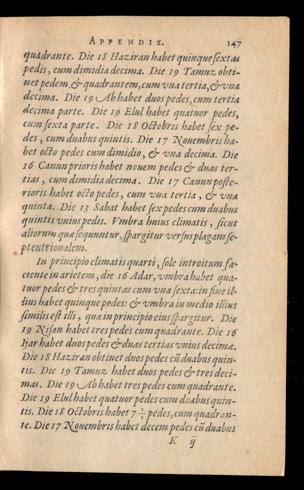 APPENDIX. 147
quadrante. Die 18 Haziran habet quinque sextas
pedis, cum dimidia decima. Die 19 Tamuz obti-
net pedem, & quadrantem, cum vna tertia, & vna
decima. Die 19 Ab habet duos pedes, cum tertia
decima parte. Die 19 Elul habet quatuor pedes,
cum sexta parte. Die 18 Octobris habet sex pe-
des, cum duabus quintis. Die 17 Nouembris ha-
bet octo pedes cum dimidio, & vna decima. Die
16 Canun prioris habet nouem pedes & duas ter-
tias, cum dimidia decima. Die 17 Canun poste-
rioris habet octo pedes, cum vna tertia, & vna
quinta. Die 13 Sabat habet sex pedes cum duabus
quintis vnius pedis. Vmbra huius climatis, sicut
aliorum quæ sequuntur, spargitur versus plagam se-
ptentrionalem.
In principio climatis quarti, sole introitum fa-
ciente in arietem, die 16 Adar, vmbra habet qua-
tuor pedes & tres quintas cum vna sexta: in fine il-
lius habet quinque pedes: & vmbra in medio illius
similis est illi, quæ in principio eius spargitur. Die
19 Nisan habet tres pedes cum quadrante. Die 16
Ijar habet duos pedes & duas tertias vnius decimæ.
Die 18 Haziran obtinet duos pedes cū duabus quin-
tis. Die 19 Tamuz habet duos pedes & tres deci-
mas. Die 19 Ab habet tres pedes cum quadrante.
Die 19 Elul habet quatuor pedes cum duabus quin-
tis. Die 18 Octobris habet 7 pedes, cum quadran-
te. Die 17 Nouembris habet decem pedes cū duabus
K ij